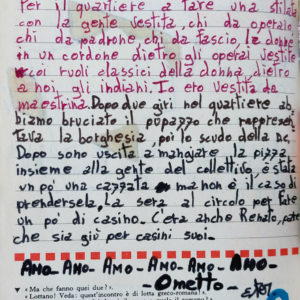 Per il quartiere a fare una sfilata
con la gente vestita, chi da operaio
chi da padrone, chi da fascio, le donne
in un cordone dietro gli operai vestite
coi ruoli classici della donna, dietro
a noi, gli indiani. Io ero vestita da
maestrina. Dopo due giri nel quartiere ab,
biamo bruciato il pupazzo che rappresen
tava la borghesia, poi lo scudo della DC,
Dopo sono uscita a mangiare la pizza
insieme alla gente del collettivo, è stata
un po' una cazzata ma non è il caso di
prendersela, La sera al circolo per fare
un po' di casino. C'era anche Renato, pare
che sia giù per casini suoi.
AMO- AMO- AMO- AMO- AMO- AMO-
-Ometto-
▼ « Ma che fanno quei due? ».
« Lottano! Veda: quest'incontro è di lotta greco-romana! ».